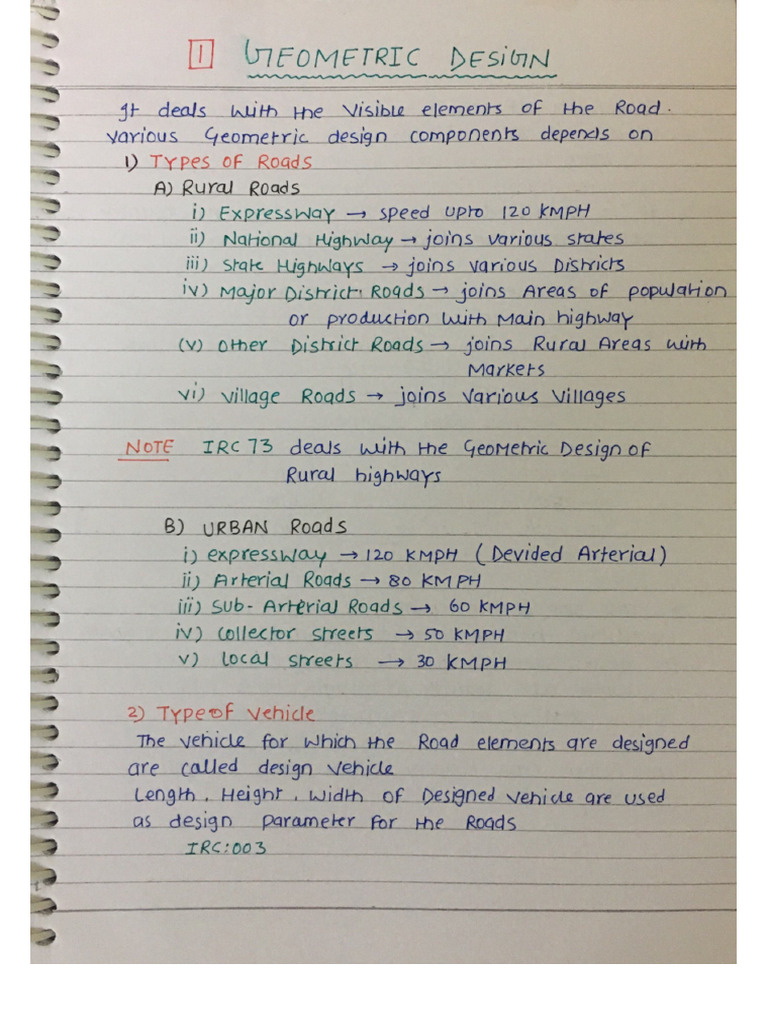 1 GEOMETRIC DESIGN
It deals with the visible elements of the Road.
Various Geometric design components depends on
1) Types of Roads
A) Rural Roads
i) Expressway → speed upto 120 KMPH
ii) National Highway → joins various states
iii) State Highways → joins various Districts
iv) Major District Roads → joins Areas of population
or production with Main highway
(v) Other District Roads → joins Rural Areas with
Markets
vi) Village Roads → joins various villages
NOTE IRC 73 deals with the Geometric Design of
Rural highways
B) URBAN Roads
i) expressway → 120 KMPH (Devided Arterial)
ii) Arterial Roads → 80 KMPH
iii) Sub-Arterial Roads → 60 KMPH
iv) Collector streets → 50 KMPH
v) Local streets → 30 KMPH
2) Type of vehicle
The vehicle for which the Road elements are designed
are called design vehicle
Length, Height, width of Designed vehicle are used
as design parameter for the Roads
IRC:003